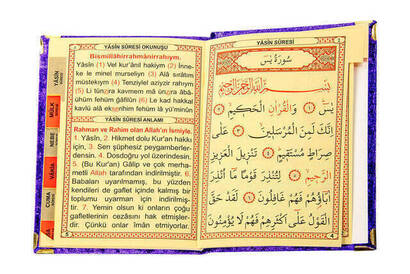 YÂSÎN SÛRESİ OKUNUŞU
Bismillâhirrahmânirrahıym.
Yâsîn (1) Vel kur'ânil hakiym (2) İnne-
ke le minel murseliyn (3) Alâ sırâtım
müstekıym (4) Tenziylel azıyzirrahıym
(5) Li tünzira kavmen mâ ünzira âbâ-
ühüm fehüm ğâfilûn (6) Le kad hakkal
kavlü alâ ekserihim fehüm lâ yü'minûn
YÂSÎN SÛRESİ ANLAMI
Rahman ve Rahim olan Allah'ın İsmiyle.
1. Yâsîn, 2. Hikmet dolu Kur'an hakkı
için, 3. Sen şüphesiz peygamberler-
densin. 4. Dosdoğru yol üzerindesin.
5. (Bu Kur'an) Gâlip ve çok merha-
metli Allah tarafından indirilmiştir. 6.
Babaları uyarılmamış, bu yüzden
kendileri de gaflet içinde kalmış bir
toplumu uyarman için indirilmiş-
tir. 7. Yemin olsun ki onların çoğu
gafletlerinin cezasını hak etmişler-
dir. Çünkü onlar iman etmiyorlar.
YÂSÎN
MÜLK
NEBE
VÂKIA
CUMA
YÂSÎN SÛRESİ
سُورَةُ يٰسٓ
بِسْمِ اللّٰهِ الرَّحْمٰنِ الرَّحِيمِ
يٰسٓ ﴿١﴾ وَالْقُرْاٰنِ الْحَكِيمِ ﴿٢﴾
اِنَّكَ لَمِنَ الْمُرْسَلِينَ ﴿٣﴾ عَلٰى
صِرَاطٍ مُسْتَقِيمٍ ﴿٤﴾ تَنْزِيلَ الْعَزِيزِ
الرَّحِيمِ ﴿٥﴾ لِتُنْذِرَ قَوْمًا مَٓا اُنْذِرَ
اٰبَٓاؤُهُمْ فَهُمْ غَافِلُونَ ﴿٦﴾ لَقَدْ حَقَّ
الْقَوْلُ عَلٰٓى اَكْثَرِهِمْ فَهُمْ لَا يُؤْمِنُونَ
4